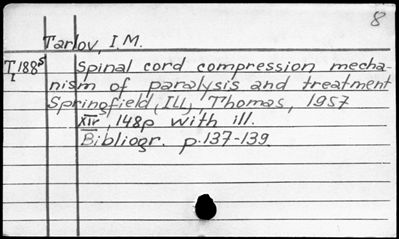 8
Tarlov, I.M.
T188s Spinal cord compression mecha-
nism of paralysis and treatment
Springfield, (Ill), Thomas, 1957
XIV, 148p with ill.
Bibliogr. p.137-139.